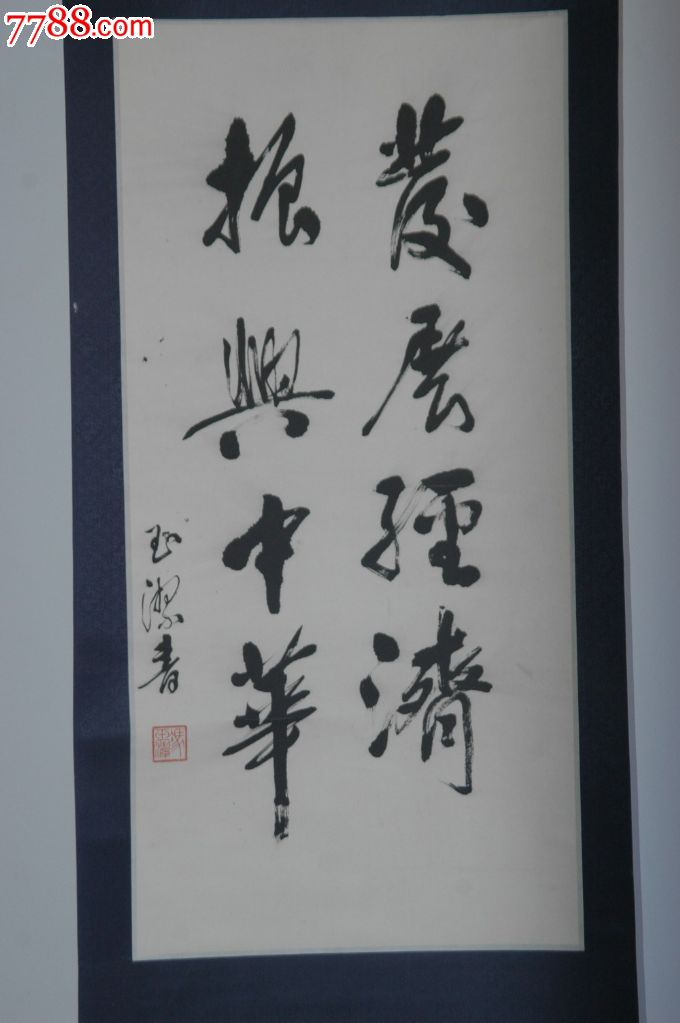 7788.com
發展經濟
振興中華
玉潔書